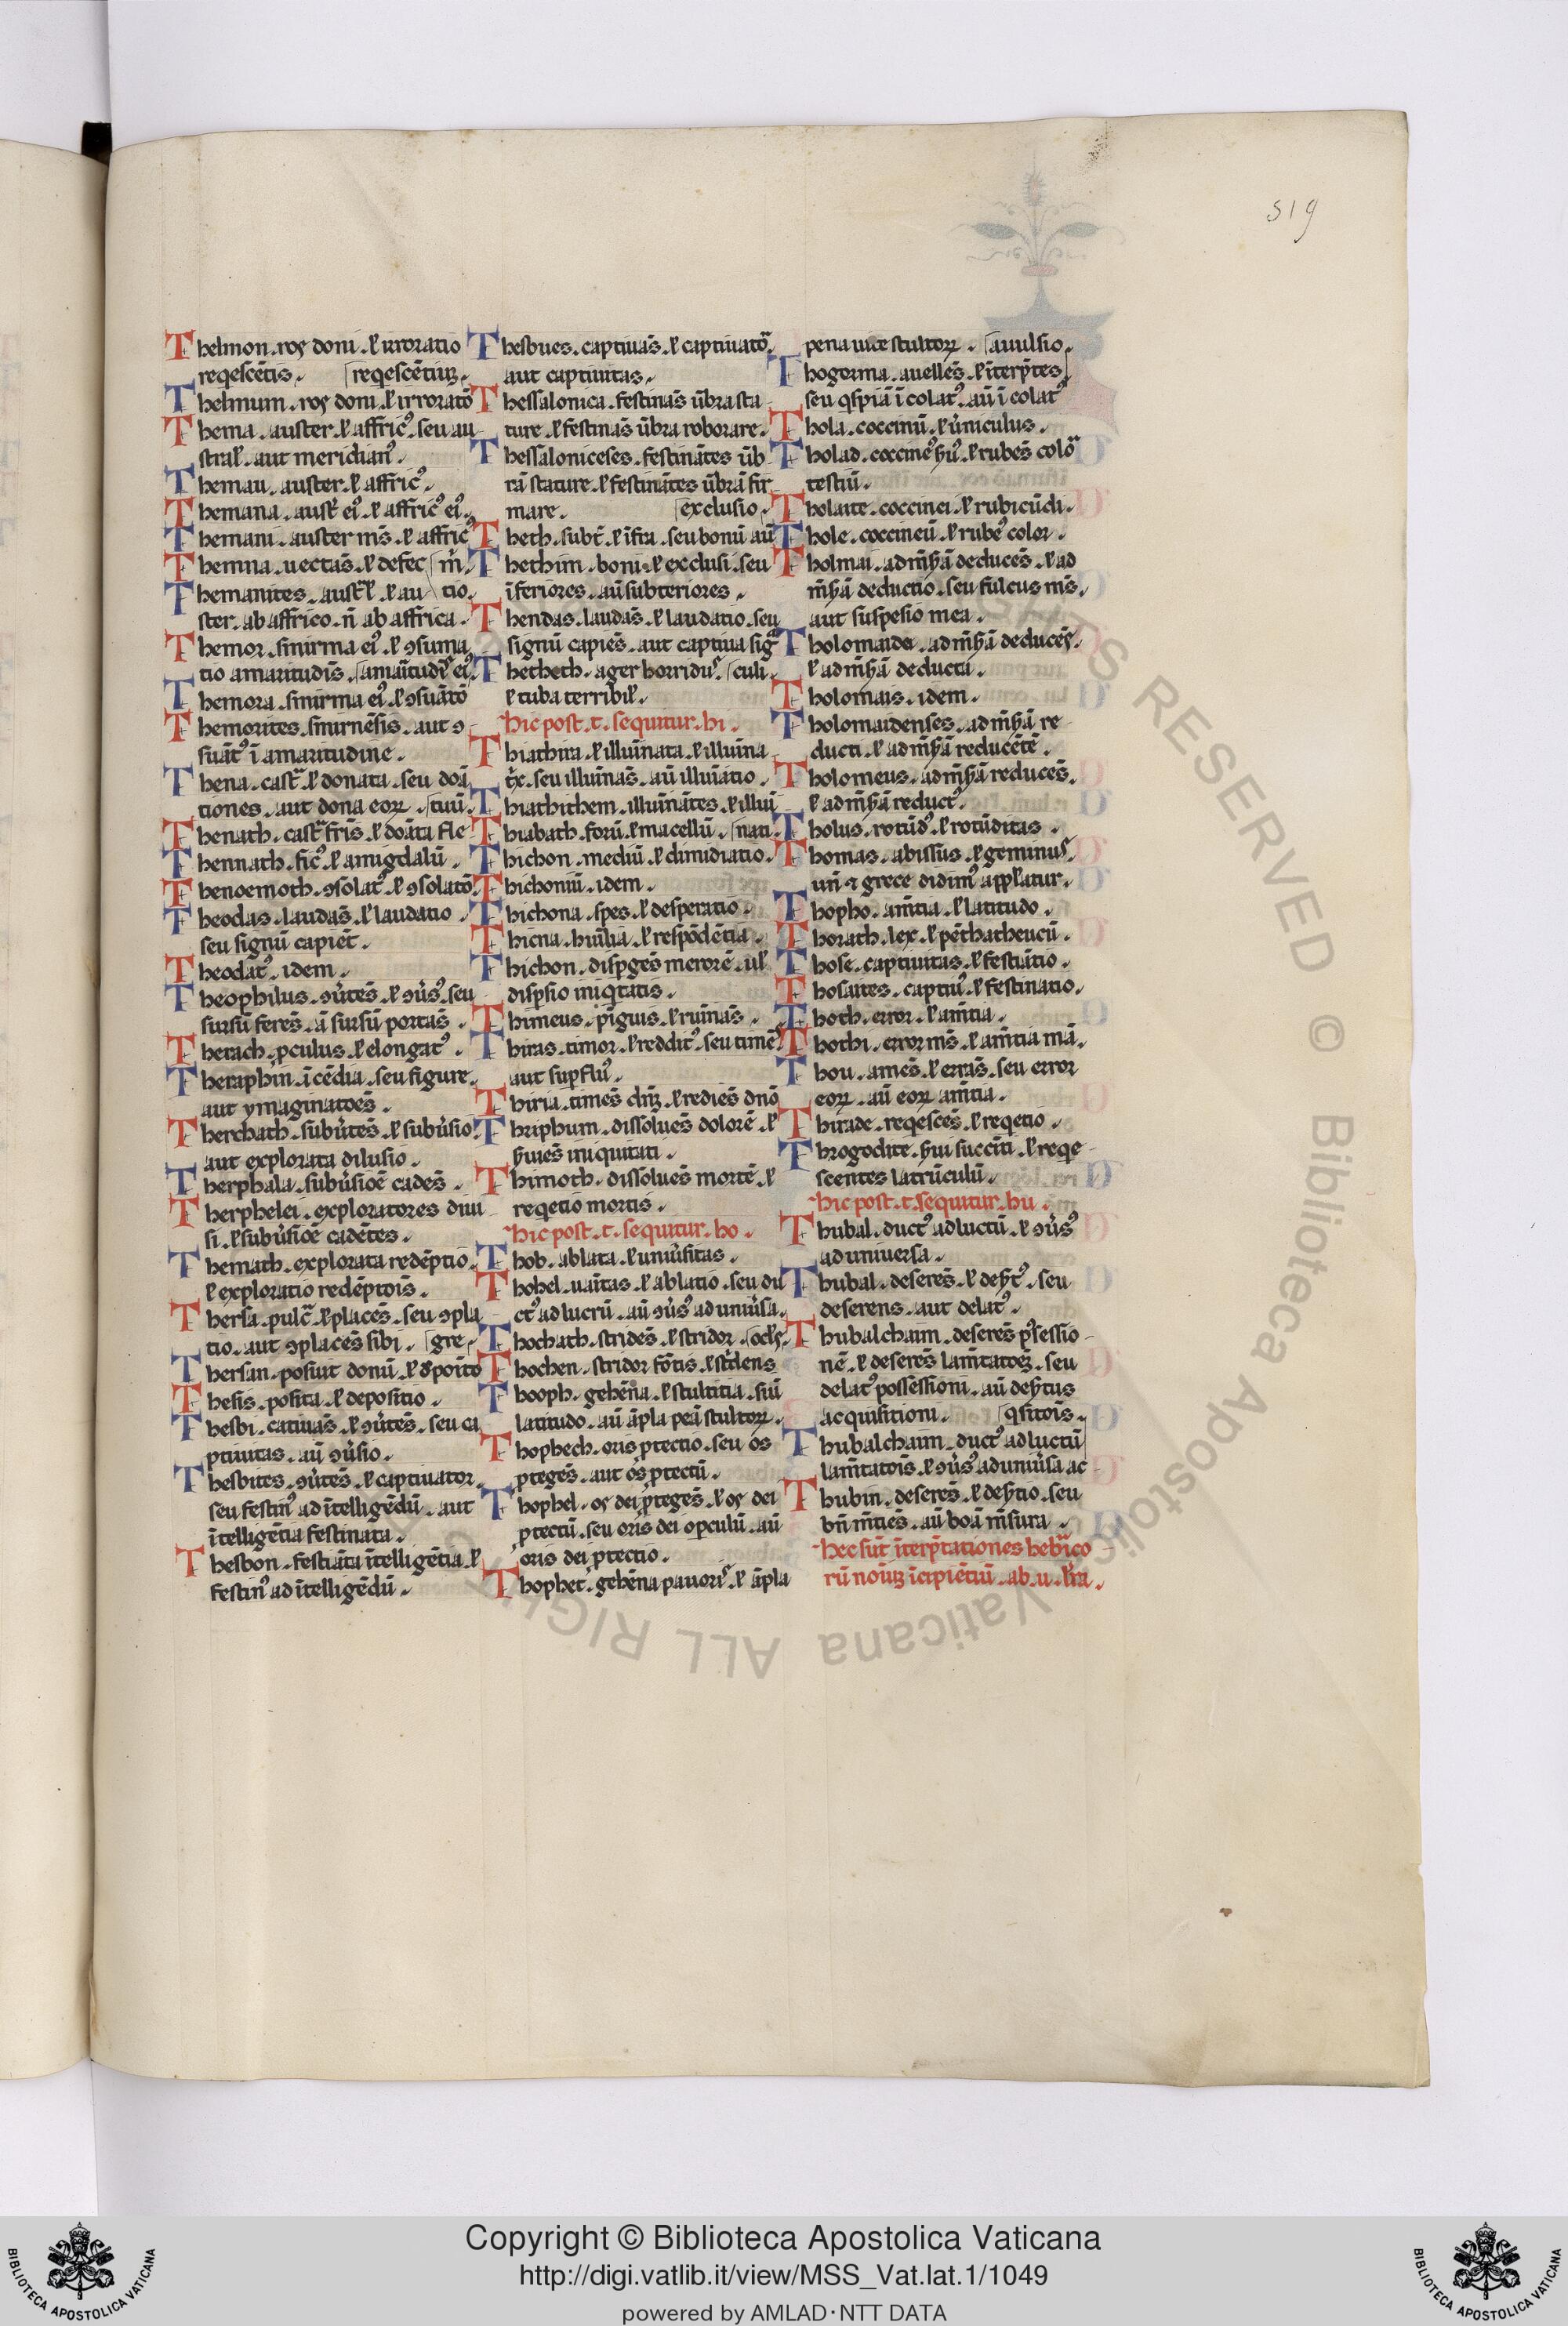 519
Thelmon. ros doni. ł irroratio
reqescētis. reqescētiuʒ.
Thelmum. ros doni. ł irroratō
Thema. auster. ł affricꝰ. seu au
stral̄. aut meridianꝰ.
Theman. auster. ł affricꝰ.
Themana. aust̄ eiꝰ. ł affricꝰ eiꝰ.
Themani. auster m̄s. ł affricꝰ
Themna. uectas̄. ł defec m̄.
Themanites. aust̄l̄. ł au tio.
ster. ab affrico. n̄ ab affrica.
Themor. smirma eiꝰ. ł ꝯsuma
tio amaritudis̄. amāitudis̄ eiꝰ.
Themora. smirma eiꝰ. ł ꝯsuātō
Themorites. smirnēsis. aut ꝯ
suātꝰ ī amaritudine.
Thena. cast̄. ł donata. seu doā
tiones. aut dona eoꝝ. tuū.
Thenath. cast̄ fr̄is. ł doāta fle
Thennath. ficꝰ. ł amigdalū.
Thenoemoth. ꝯsolatꝰ. ł ꝯsolatō.
Theodas. laudas̄. ł laudatio.
seu signū capiēt.
Theodatꝰ. idem.
Theophilus. ꝯūtēs. ł ꝯūsꝰ. seu
sursū ferēs. ā sursū portās.
Therach. pculus. ł elongatꝰ.
Theraphin. īcēdia. seu figure.
aut ymaginatōes.
Therchath. subūtēs. ł subūsio.
aut explorata dilusio.
Therphala. subūsiōē cadēs.
Therphelei. exploratores diui
si. ł subūsiōē cadētes.
Themath. explorata redēptio.
ł exploratio redēptoīs.
Thersa. pulc̄. ł placēs. seu ꝯpla
tio. aut ꝯplacēs sibi. gre
Thersan. posuit donū. ł dꝰpoitō
Thesis. posita. ł depositio.
Thesbi. catiuās. ł ꝯūtēs. seu ca
ptiuitas. aū ꝯūsio.
Thesbites. ꝯūtēs. ł captiuator.
seu festinꝰ ad ītelligēdū. aut
ītelligētia festinata.
Thesbon. festiāta ītelligētia. ł
festinꝰ ad ītelligēdū.
Thesbues. captiuās. ł captiuatō.
aut captiuitas.
Thessalonica. festinās ūbra sta
ture. ł festinās ūbra roborare.
Thessaloniceses. festinātes ūb
rā stature. ł festinātes ūbrā fir
mare. exclusio.
Theth. subt̄. ł īfra. seu bonū aū
Thethim. boni. ł exclusi. seu
īferiores. aū subteriores.
Thendas. laudās. ł laudatio. seu
signū capiēs. aut captiua sig
Thetheth. ager horridus. culi.
ł tuba terribil̄.
hic post. t. sequitur. hi.
Thiathira. ł illuīnata. ł illuīna
t̄x. seu illuīnās. aū illuīatio.
Thiathithem. illuīnātes. ł illuī
Thiabath. forū. ł macellū. nati.
Thichon. mediū. ł dimidiatio.
Thichoniū. idem.
Thichona. spes. ł desperatio.
Thicna. hiūlia. ł respōdētia.
Thichon. disꝑgēs merorē. ul̄
disꝑsio iniqtatis.
Thimeus. p̄guis. ł ruinās.
Thiras. timor. ł redditꝰ. seu timēs
aut suꝑfluꝰ.
Thiria. timēs chꝫ. ł rediēs dnō
Thriphum. dissoluēs dolorē. ł
ħuiēs iniquitati.
Thimoth. dissoluēs mortē. ł
reqetio mortis.
hic post. t. sequitur. ho.
Thob. ablata. ł uniūsitas.
Thohel. uaītas. ł ablatio. seu du
ctꝰ ad lucrū. aū ꝯūsꝰ ad uniūsa.
Thochath. stridēs. ł stridor. oclꝫ.
Thochen. stridor fōtis. ł stridens
Thooph. gehēna. ł stultitia. siū
latitudo. aū āpla peā stultoꝝ.
Thophech. oris ꝓtectio. seu os
ꝓtegēs. aut os ꝓtectū.
Thophel. os dei ꝓtegēs. ł os dei
ꝓtectū. seu oris dei oꝑculū. aū
oris dei ꝓtectio.
Thophet. gehēna pauoris. ł āpla
pena uite stultoꝝ. auulsio.
Thogorma. auellēs. ł īterp̄tes
seu qspiā ī colatꝰ. aū ī colatꝰ
Thola. coccinū. ł ūniculus.
Tholad. coccinēꝰ ħuꝰ. ł rubēs colō
testiū.
Tholaite. coccinei. ł rubicūdi.
Thole. coccineū. ł rubeꝰ color.
Tholmai. ad m̄ħā deducēs. ł ad
m̄ħā deductio. seu fulcus m̄s.
aut suspēsio mea.
Tholomaida. ad m̄ħā deducēs.
ł ad m̄ħā deducta.
Tholomais. idem.
Tholomaidenses. ad m̄ħā re
ducti. ł ad m̄ħā reducētē.
Tholomeus. ad m̄ħā reducēs.
ł ad m̄ħā reductꝰ.
Tholus. rotūdꝰ. ł rotūditas.
Thomas. abissus. ł geminus.
un̄ ⁊ grece didimꝰ appl̄atur.
Thopho. am̄tia. ł latitudo.
Thorath. lex. ł pēthatheucū.
Those. captiuitas. ł festiātio.
Thosaites. captiuꝰ. ł festinatio.
Thoth. error. ł am̄tia.
Thothi. error m̄s. ł am̄tia mā.
Thou. amēs. ł errās. seu error
eoꝝ. aū eoꝝ am̄tia.
Thirade. reqescēs. ł reqetio.
Throgodite. ħui succīti. ł reqe
scentes latrūculū.
hic post. t. sequitur. hu.
Thubal. ductꝰ ad luctū. ł ꝯūsꝰ
ad uniuersa.
Thubal. deserēs. ł deħtꝰ. seu
deserens. aut delatꝰ.
Thubalchaim. deserēs possessio
nē. ł deserēs lam̄tatōeꝫ. seu
delatꝰ possessioni. aū deħtus
acquisitioni. qsitoīs.
Thubalchaim. ductꝰ ad luctū
lam̄tatoīs. ł ꝯūsꝰ ad uniūsa ac
Thubin. deserēs. ł deħtio. seu
bn̄ m̄tiēs. aū boā m̄sura.
hec sūt īterp̄tationes hebraico
rū noīuꝫ īcipiētiū. ab. u. lr̄a.
Copyright © Biblioteca Apostolica Vaticana
http://digi.vatlib.it/view/MSS_Vat.lat.1/1049
powered by AMLAD·NTT DATA
BIBLIOTECA APOSTOLICA VATICANA
BIBLIOTECA APOSTOLICA VATICANA
ALL RIGHTS RESERVED © Biblioteca Apostolica Vaticana ALL RIGHTS